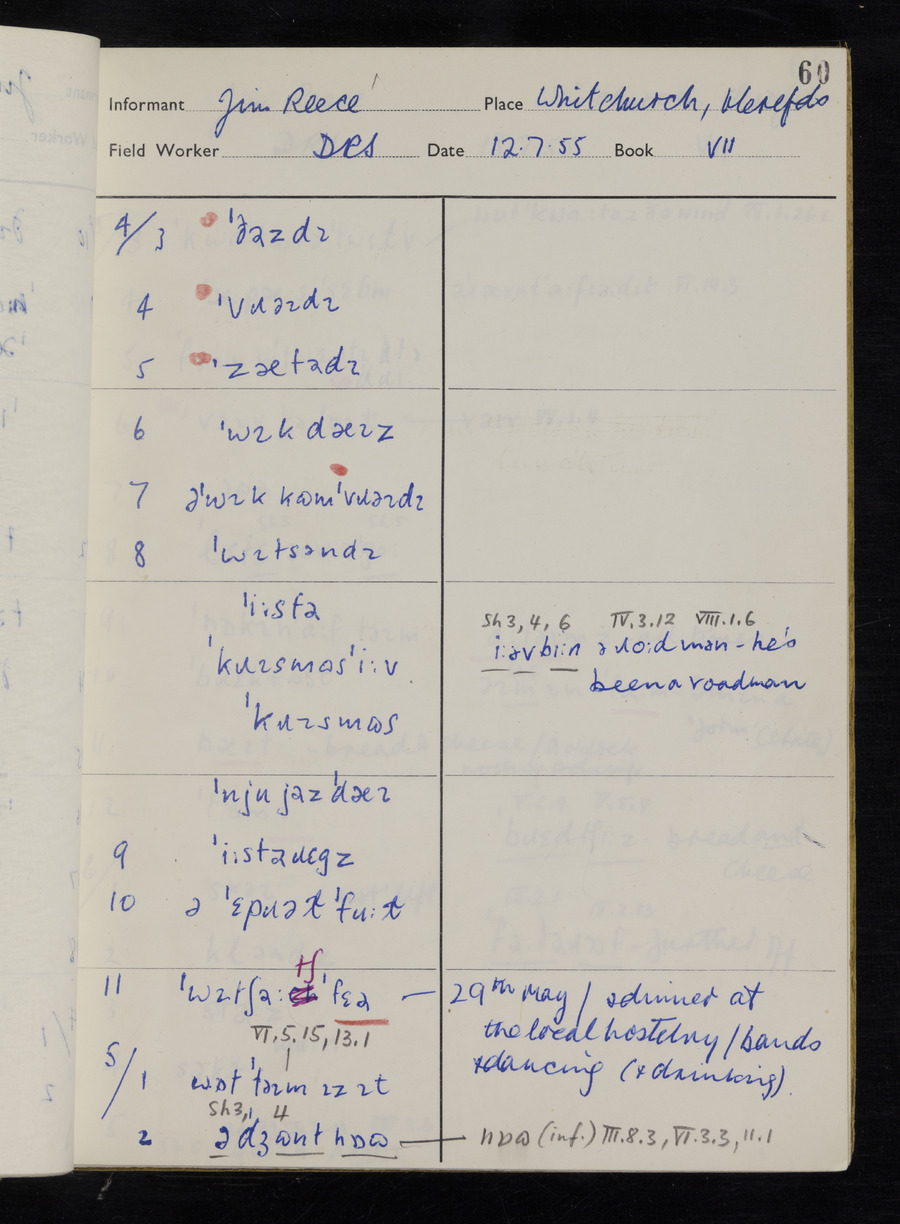 60
Informant Jim Reece Place Whitchurch, Herefds
Field Worker DRS Date 12.7.55 Book VII
4/3
4 ˈvɹəɪdɪ
5 ˈzætədɪ
6 ˈwɪk dæɪz
7 əˈwɪk kɷmˈvɹəɪdɪ
8 ˈwɪtsəndɪ
ˈiːstə
ˈkɹɪsməsˈiːv
ˈkɹɪsməs
ˈnjɹ jəz ˈdæɪ
Sh3, 4, 6 IV.3.12 VIII.1.6
iːəv biːn ə ɹoːdmən - he's
been a roadman
9 ˈiːstəɹɛgz
10 ə ˈɛpɹət ˈfɹːt
11 ˈwɪtʃəː tʃ ˈfɛə — 29th May / a dinner at
the local hostelry / bands
+ dancing (+ drinking)
VI.5.15, 13.1
5/1 wɒt ˈtəɪm ɪz ɪt
Sh3, 1, 4
2 ədʒɷnt nɒɷ — nɒɷ (inf.) III.8.3, VI.3.3, 11.1